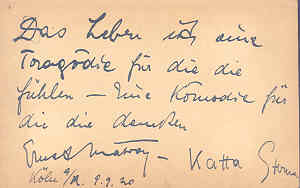 Das Leben ist eine
Tragödie für die die
fühlen – Eine Komödie für
die die denken
Ernst Matray – Katta Sterna
Köln a/Rh. 9.9.20